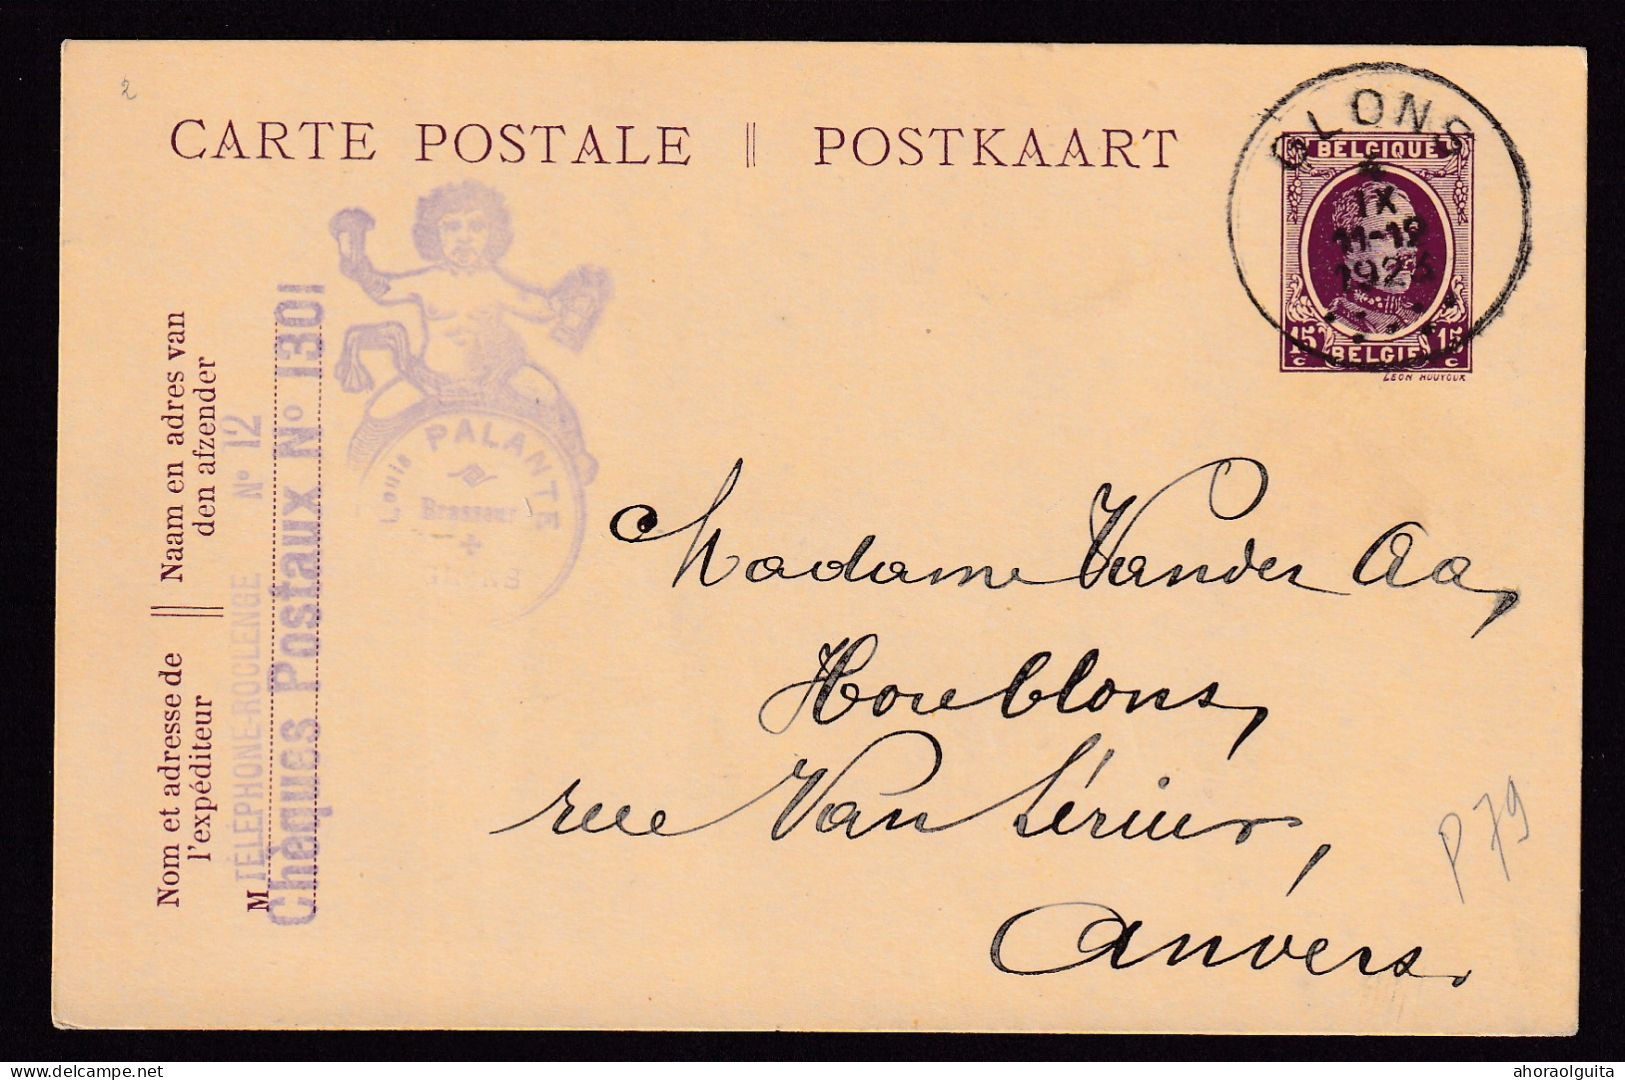 2
CARTE POSTALE || POSTKAART
GLONS
IX
11-12
1923
BELGIQUE
15 c
15 c
BELGIË
LEON HOUYOUX
Naam en adres van
den afzender
Nom et adresse de
l'expéditeur
M
TÉLÉPHONE-ROCLENGE N° 12
Chèques Postaux N° 1301
Louis PALANTE
Brasseur
Madame Vander Aa,
Houblons,
rue Van
Anvers.
P79
delcampe.net
ahoraolguita